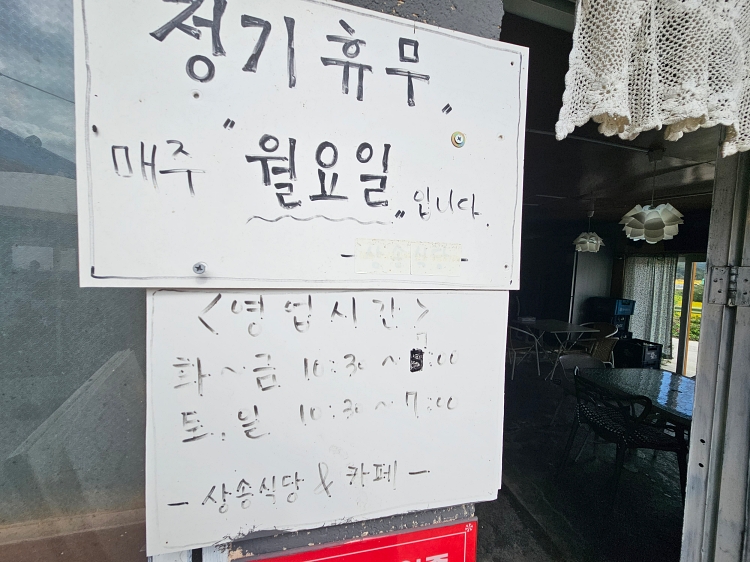 정기휴무"
매주 "월요일" 입니다.
<영업시간>
화~금 10:30 ~ 7:00
토, 일 10:30 ~ 7:00
- 상송식당 & 카페 -